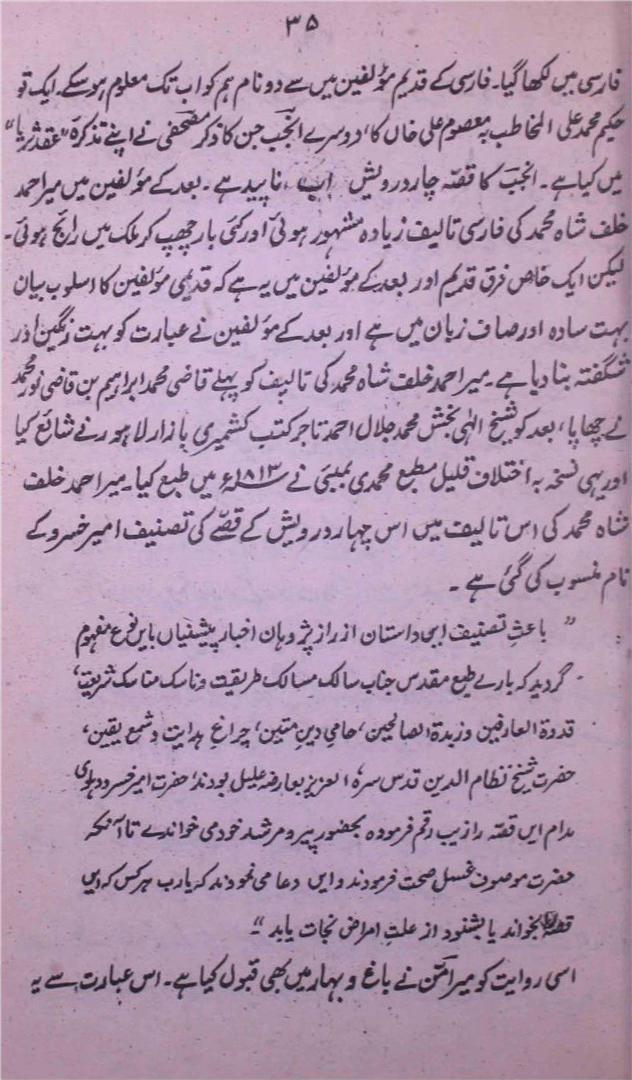 ۳۵
فارسی میں لکھا گیا۔ فارسی کے قدیم مؤلفین میں سے دو نام ہم کو اب تک معلوم ہو سکے۔ ایک تو
حکیم محمد علی المخاطب بہ معصوم علی خاں کا، دوسرے انجب جن کا ذکر مصحفی نے اپنے تذکرہ "عقد ثریا"
میں کیا ہے۔ انجب کا قصہ چار درویش اب ناپید ہے۔ بعد کے مؤلفین میں میر احمد
خلف شاہ محمد کی فارسی تالیف زیادہ مشہور ہوئی اور کئی بار چھپ کر ملک میں رائج ہوئی۔
لیکن ایک خاص فرق قدیم اور بعد کے مؤلفین میں یہ ہے کہ قدیمی مؤلفین کا اسلوب بیان
بہت سادہ اور صاف زبان میں ہے اور بعد کے مؤلفین نے عبارت کو بہت رنگین اور
شگفتہ بنا دیا ہے۔ میر احمد خلف شاہ محمد کی تالیف کو پہلے قاضی محمد ابراہیم بن قاضی نور محمد
نے چھاپا، بعد کو شیخ الٰہی بخش محمد جلال احمد تاجر کتب کشمیری بازار لاہور نے شائع کیا
اور یہی نسخہ بہ اختلاف قلیل مطبع محمدی بمبئی نے ۱۸۱۳ء میں طبع کیا۔ میر احمد خلف
شاہ محمد کی اس تالیف میں اس چہار درویش کے قصے کی تصنیف امیر خسرو کے
نام منسوب کی گئی ہے۔
"باعثِ تصنیف ایں داستان از راز پژوہان اخبار پیشینیاں بایں نوع مفہوم
گردید کہ بارے طبع مقدس جناب سالک مسالک طریقت و ناسک مناسک شریعت،
قدوۃ العارفین و زبدۃ الصالحین، حامی دین متین، چراغ ہدایت و شمع یقین،
حضرت شیخ نظام الدین قدس سرہ العزیز بعارضہ علیل بودند، حضرت امیر خسرو دہلوی
مدام ایں قصہ را زیب رقم فرمودہ بحضور پیر و مرشد خود می خواندے تا آنکہ
حضرت موصوف غسل صحت فرمودند و ایں دعا می نمودند کہ یارب ہر کس کہ ایں
قصہ بخواند یا بشنود از علتِ امراض نجات یابد"۔
اسی روایت کو میر امن نے باغ و بہار میں بھی قبول کیا ہے۔ اس عبارت سے یہ